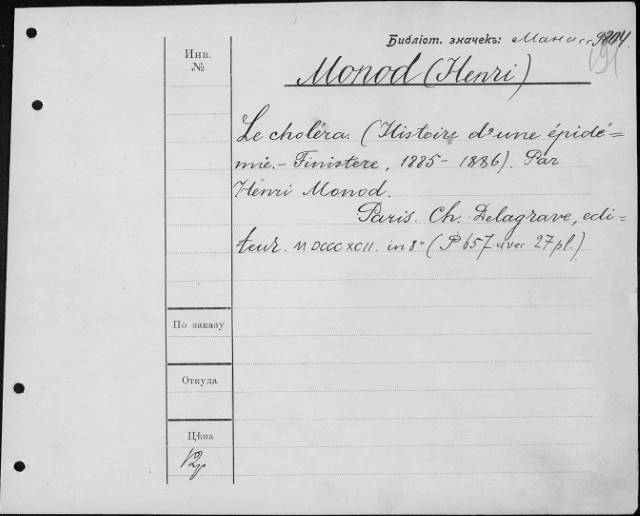 Библіот. значекъ: Манас 9804.
191
Инв.
№
Monod (Henri)
Le choléra. (Histoire d'une épidé=
mie. - Finistere, 1885 - 1886). Par
Henri Monod.
Paris. Ch. Delagrave, edi=
teur. M DCCC XCII. in 8° (P 657 avec 27 pl.)
По заказу
Откуда
Цѣна
12р